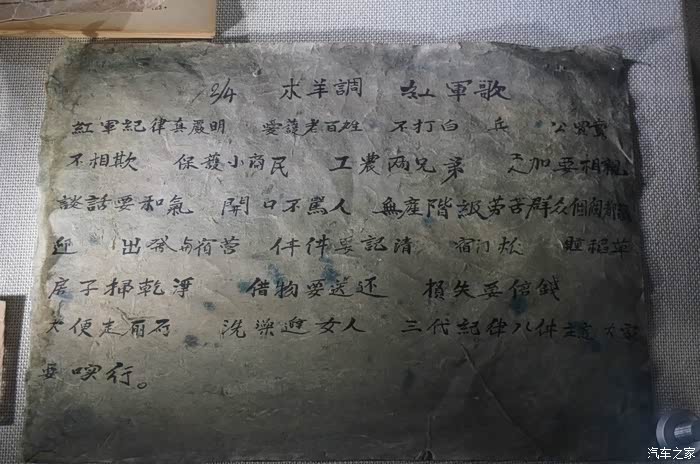 2/4 木羊調 紅軍歌
紅軍紀律真嚴明 愛護老百姓 不打白 兵 公買賣
不相欺 保護小商民 工農两兄弟 更加要相親
談話要和氣 開口不罵人 無産階級劳苦群众個個都歡
迎 出發与宿营 件件要記清 宿门板 睡稻草
房子掃乾淨 借物要送还 損失要倍錢
大便走厕所 洗澡避女人 三代紀律八件注意大家
要哭行。
汽车之家